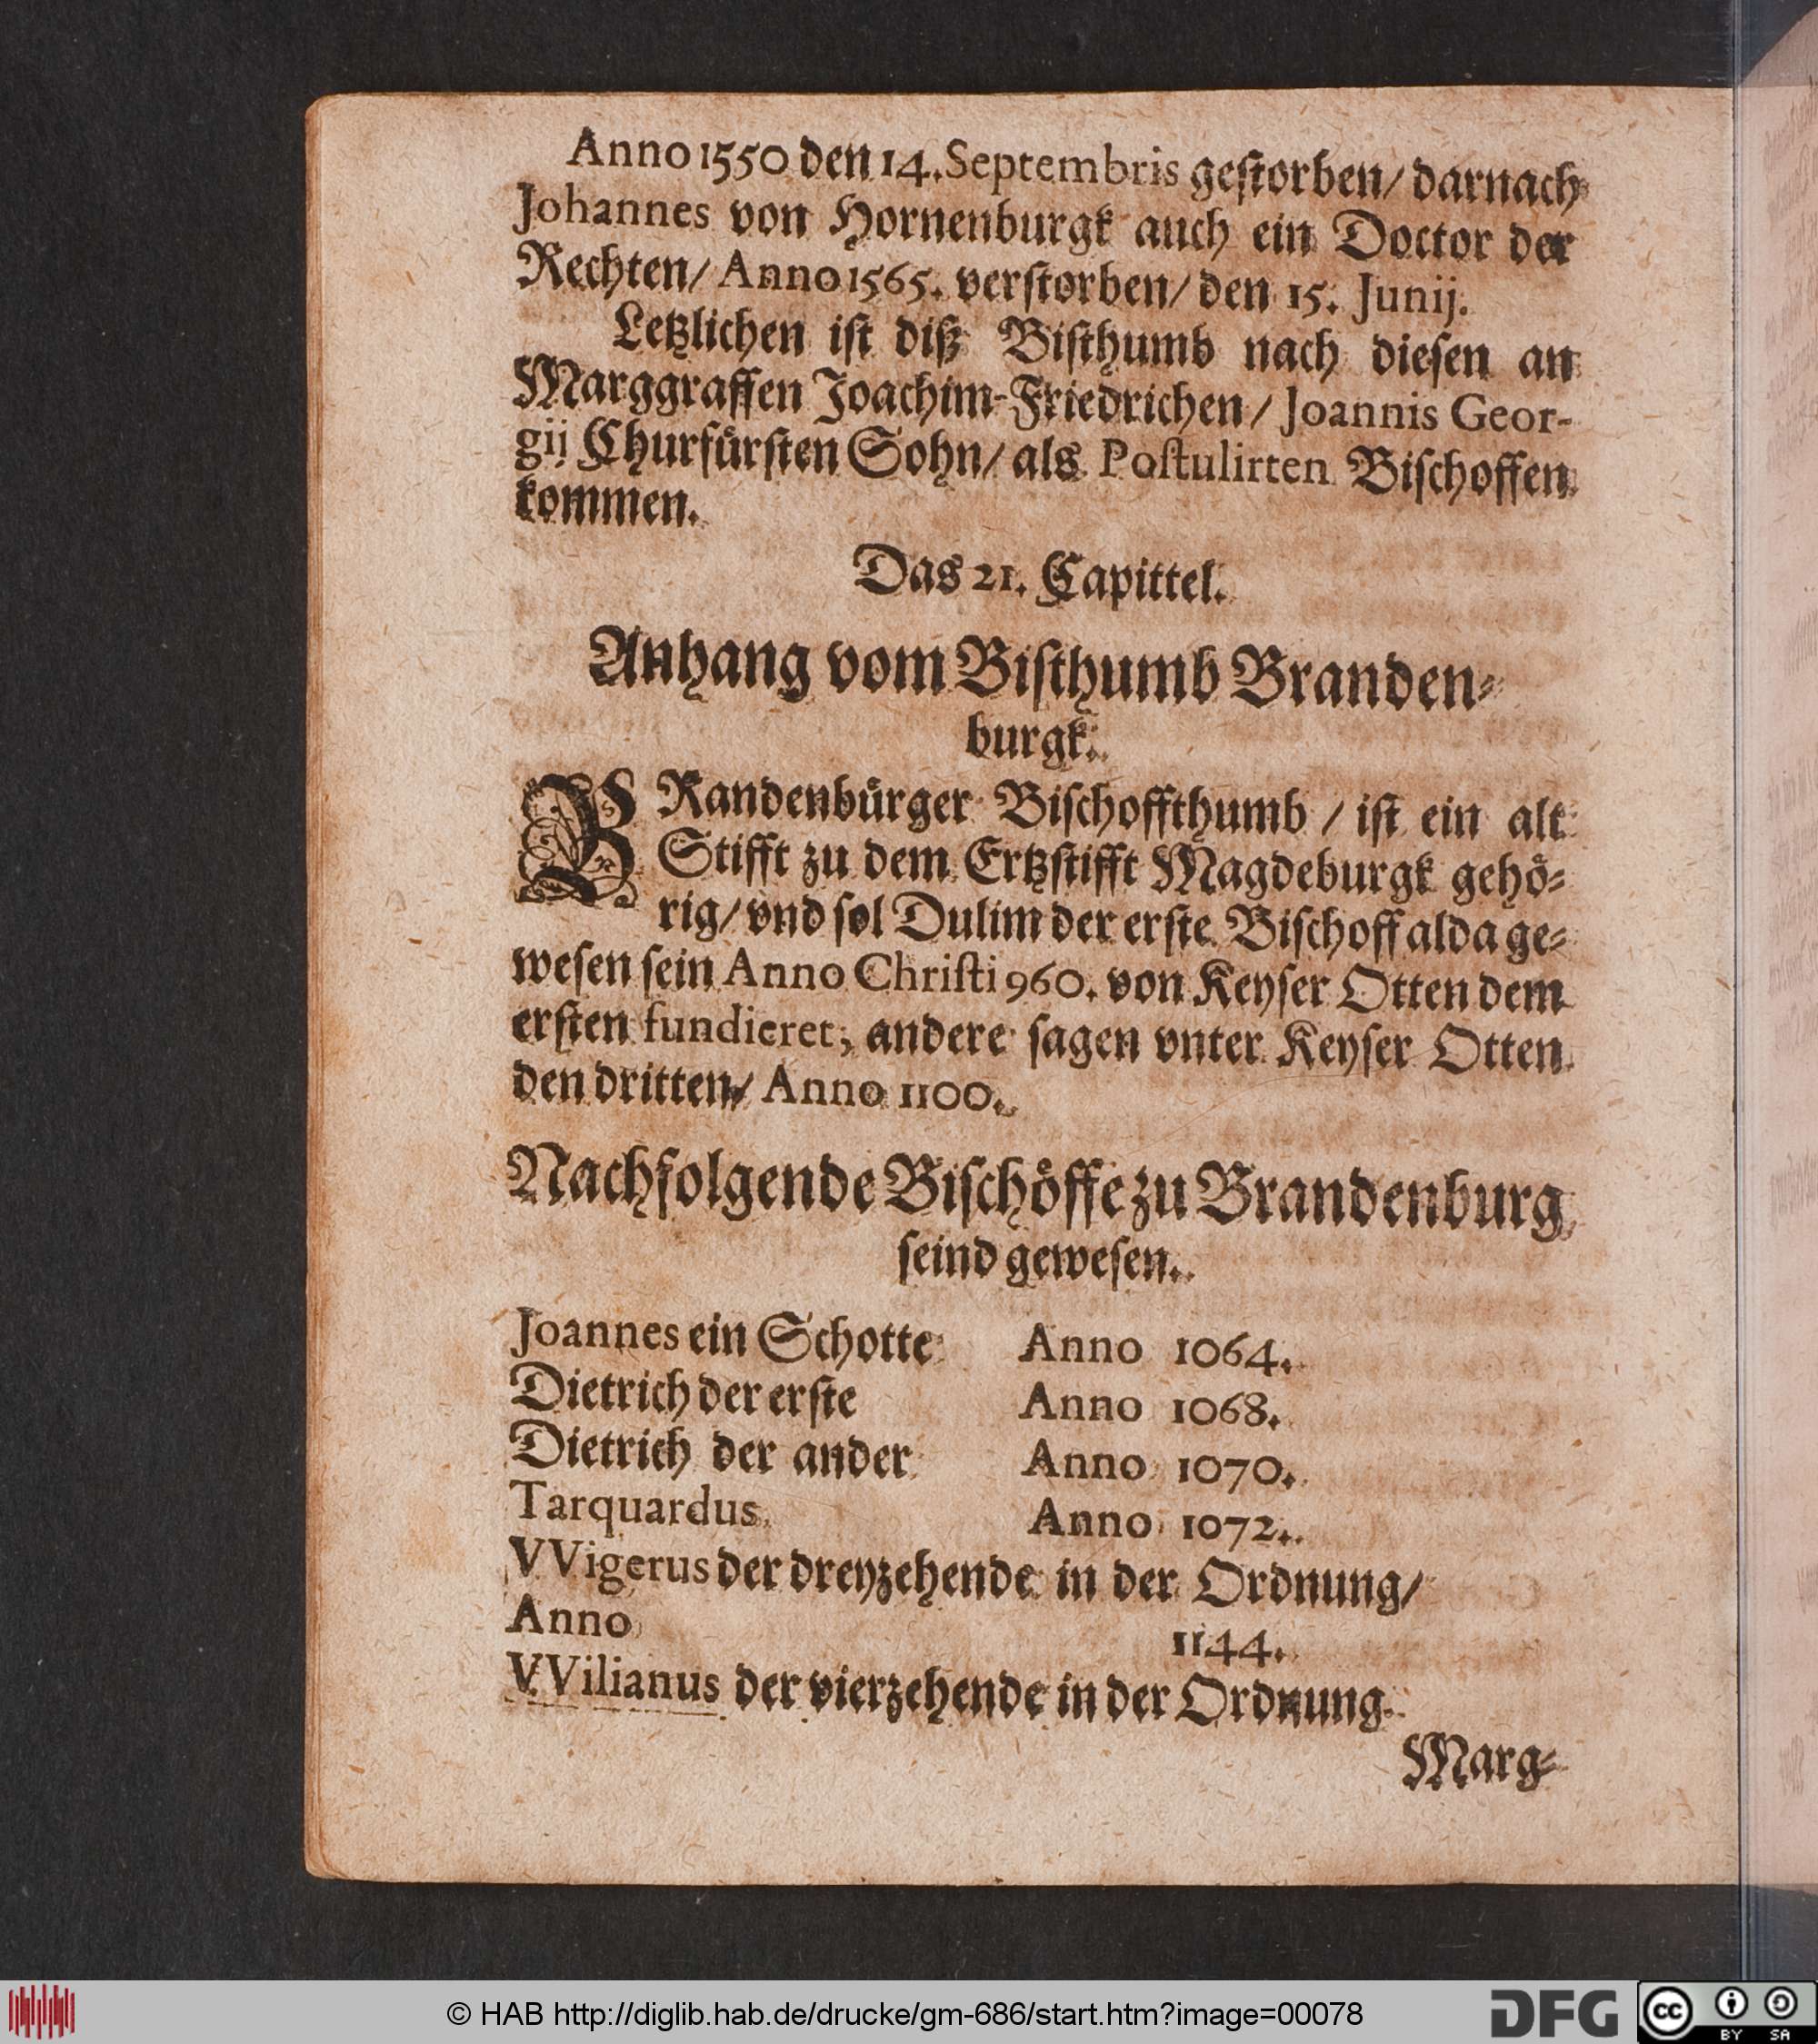 Anno 1550 den 14. Septembris gestorben/ darnach
Johannes von Hornenburgk auch ein Doctor der
Rechten/ Anno 1565. verstorben/ den 15. Junij.
Letzlichen ist diß Bisthumb nach diesen an
Marggraffen Joachim-Friedrichen/ Joannis Geor-
gij Churfürsten Sohn/ als Postulirten Bischoffen
kommen.
Das 21. Capittel.
Anhang vom Bisthumb Branden-
burgk.
BRandenbürger Bischoffthumb / ist ein alt
Stifft zu dem Ertzstifft Magdeburgk gehö-
rig/ vnd sol Dulim der erste Bischoff alda ge-
wesen sein Anno Christi 960. von Keyser Otten dem
ersten fundieret, andere sagen vnter Keyser Otten
den dritten/ Anno 1100.
Nachfolgende Bischöffe zu Brandenburg
seind gewesen.
Joannes ein Schotte Anno 1064.
Dietrich der erste Anno 1068.
Dietrich der ander Anno 1070.
Tarquardus Anno 1072.
VVigerus der dreyzehende in der Ordnung/
Anno 1144.
VVilianus der vierzehende in der Ordnung
Marg-
© HAB http://diglib.hab.de/drucke/gm-686/start.htm?image=00078
DFG
cc BY SA